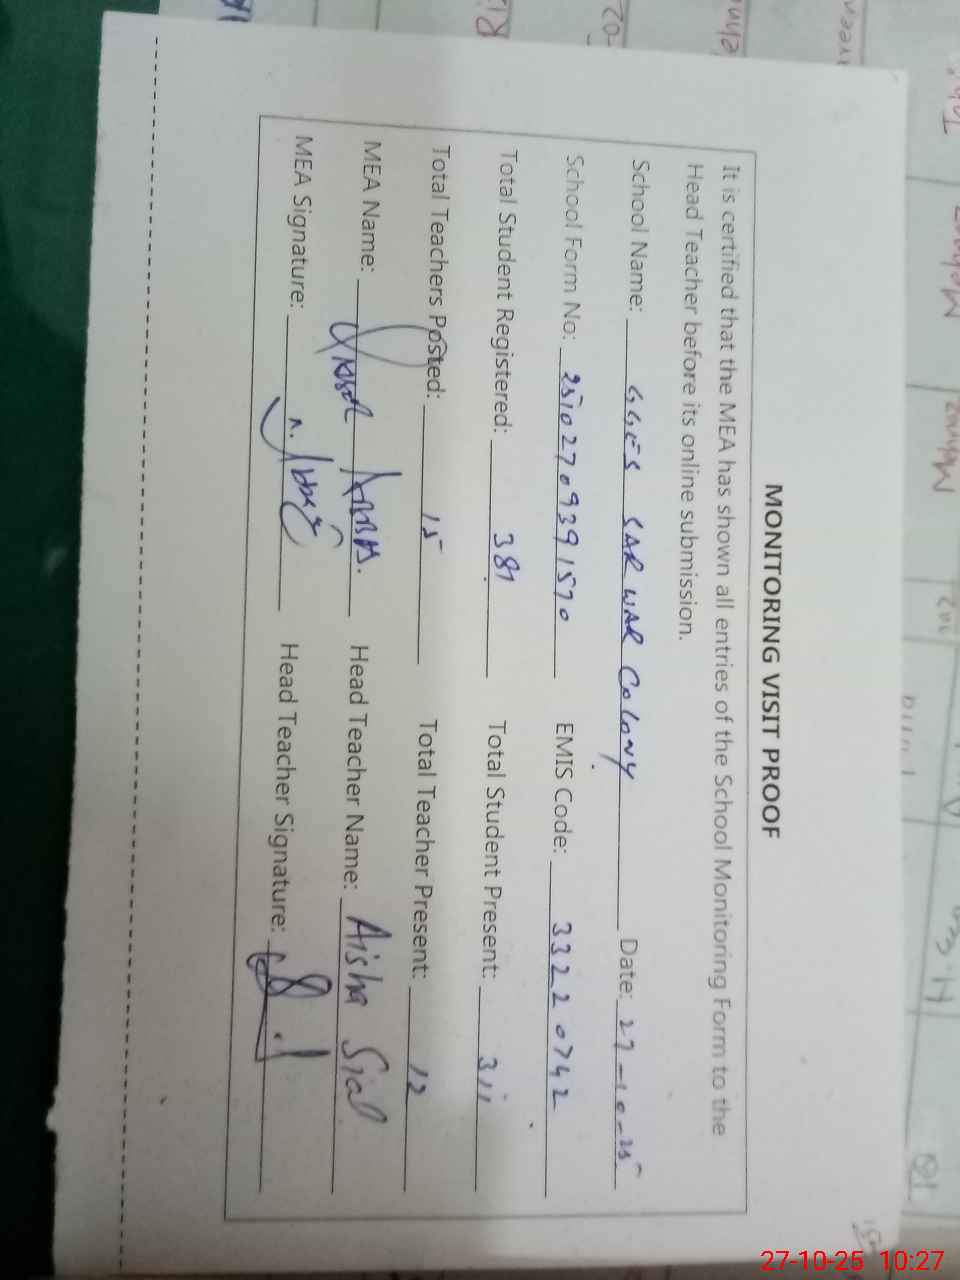 MONITORING VISIT PROOF
It is certified that the MEA has shown all entries of the School Monitoring Form to the
Head Teacher before its online submission.
School Name: GGES SARWAR Colony Date: 27-10-25
School Form No: 25102709391570 EMIS Code: 33220742
Total Student Registered: 381 Total Student Present: 311
Total Teachers Posted: 15 Total Teacher Present: 12
MEA Name: Head Teacher Name: Aisha Sial
MEA Signature: Head Teacher Signature:
27-10-25 10:27